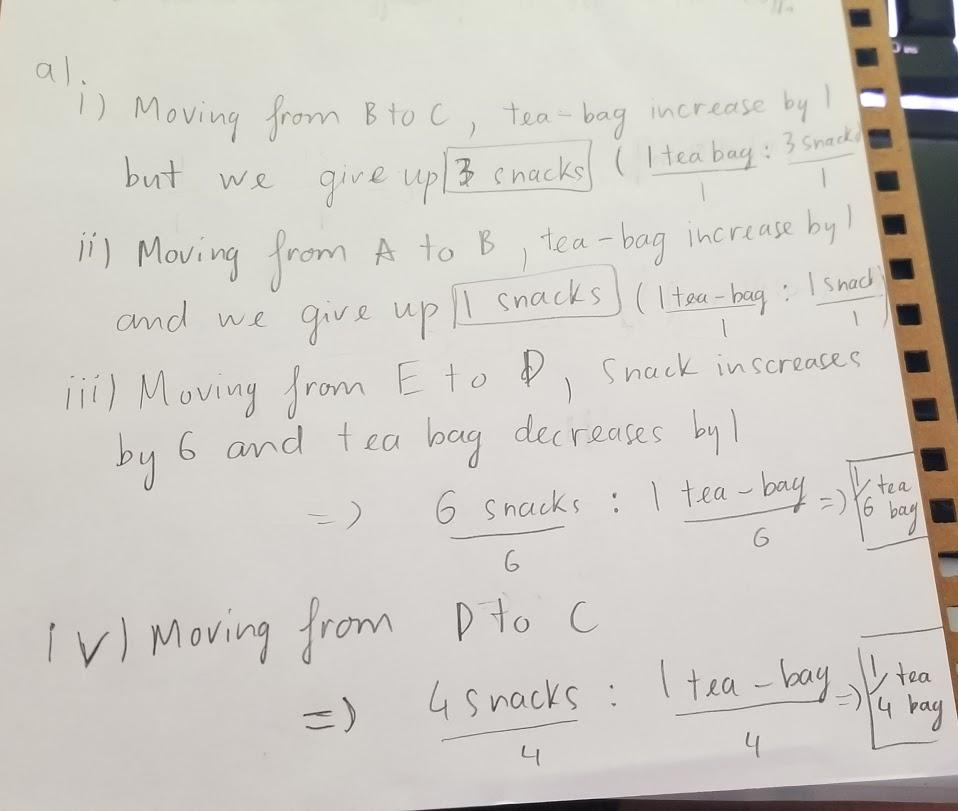 a).
i) Moving from B to C, tea-bag increase by 1
but we give up 3 snacks ( 1 tea bag : 3 snack
1 1
ii) Moving from A to B, tea-bag increase by 1
and we give up 1 snacks ( 1 tea-bag : 1 snack
1 1
iii) Moving from E to D, snack inscreases
by 6 and tea bag decreases by 1
=> 6 snacks : 1 tea-bag => 1/6 tea bag
6 6
iv) Moving from D to C
=> 4 snacks : 1 tea-bag => 1/4 tea bag
4 4